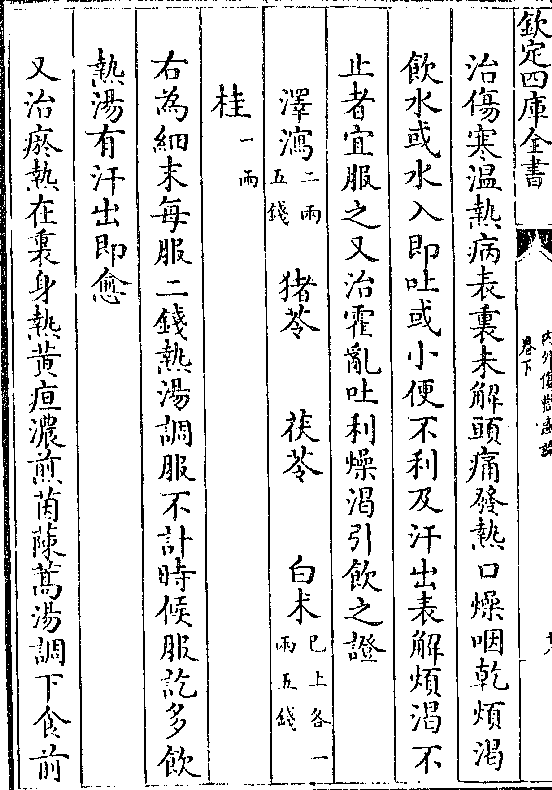 欽定四庫全書
卷下
治傷寒温熱病表裏未解頭痛發熱口燥咽乾煩渇
飲水或水入即吐或小便不利及汗出表解煩渇不
止者宜服之又治霍亂吐利燥渇引飲之證
澤瀉二兩五錢 猪苓 茯苓 白术已上各一兩五錢
桂一兩
右為細末每服二錢熱湯調服不計時候服訖多飲
熱湯有汗出即愈
又治瘀熱在裏身熱黄疸濃煎茵蔯蒿湯調下食前